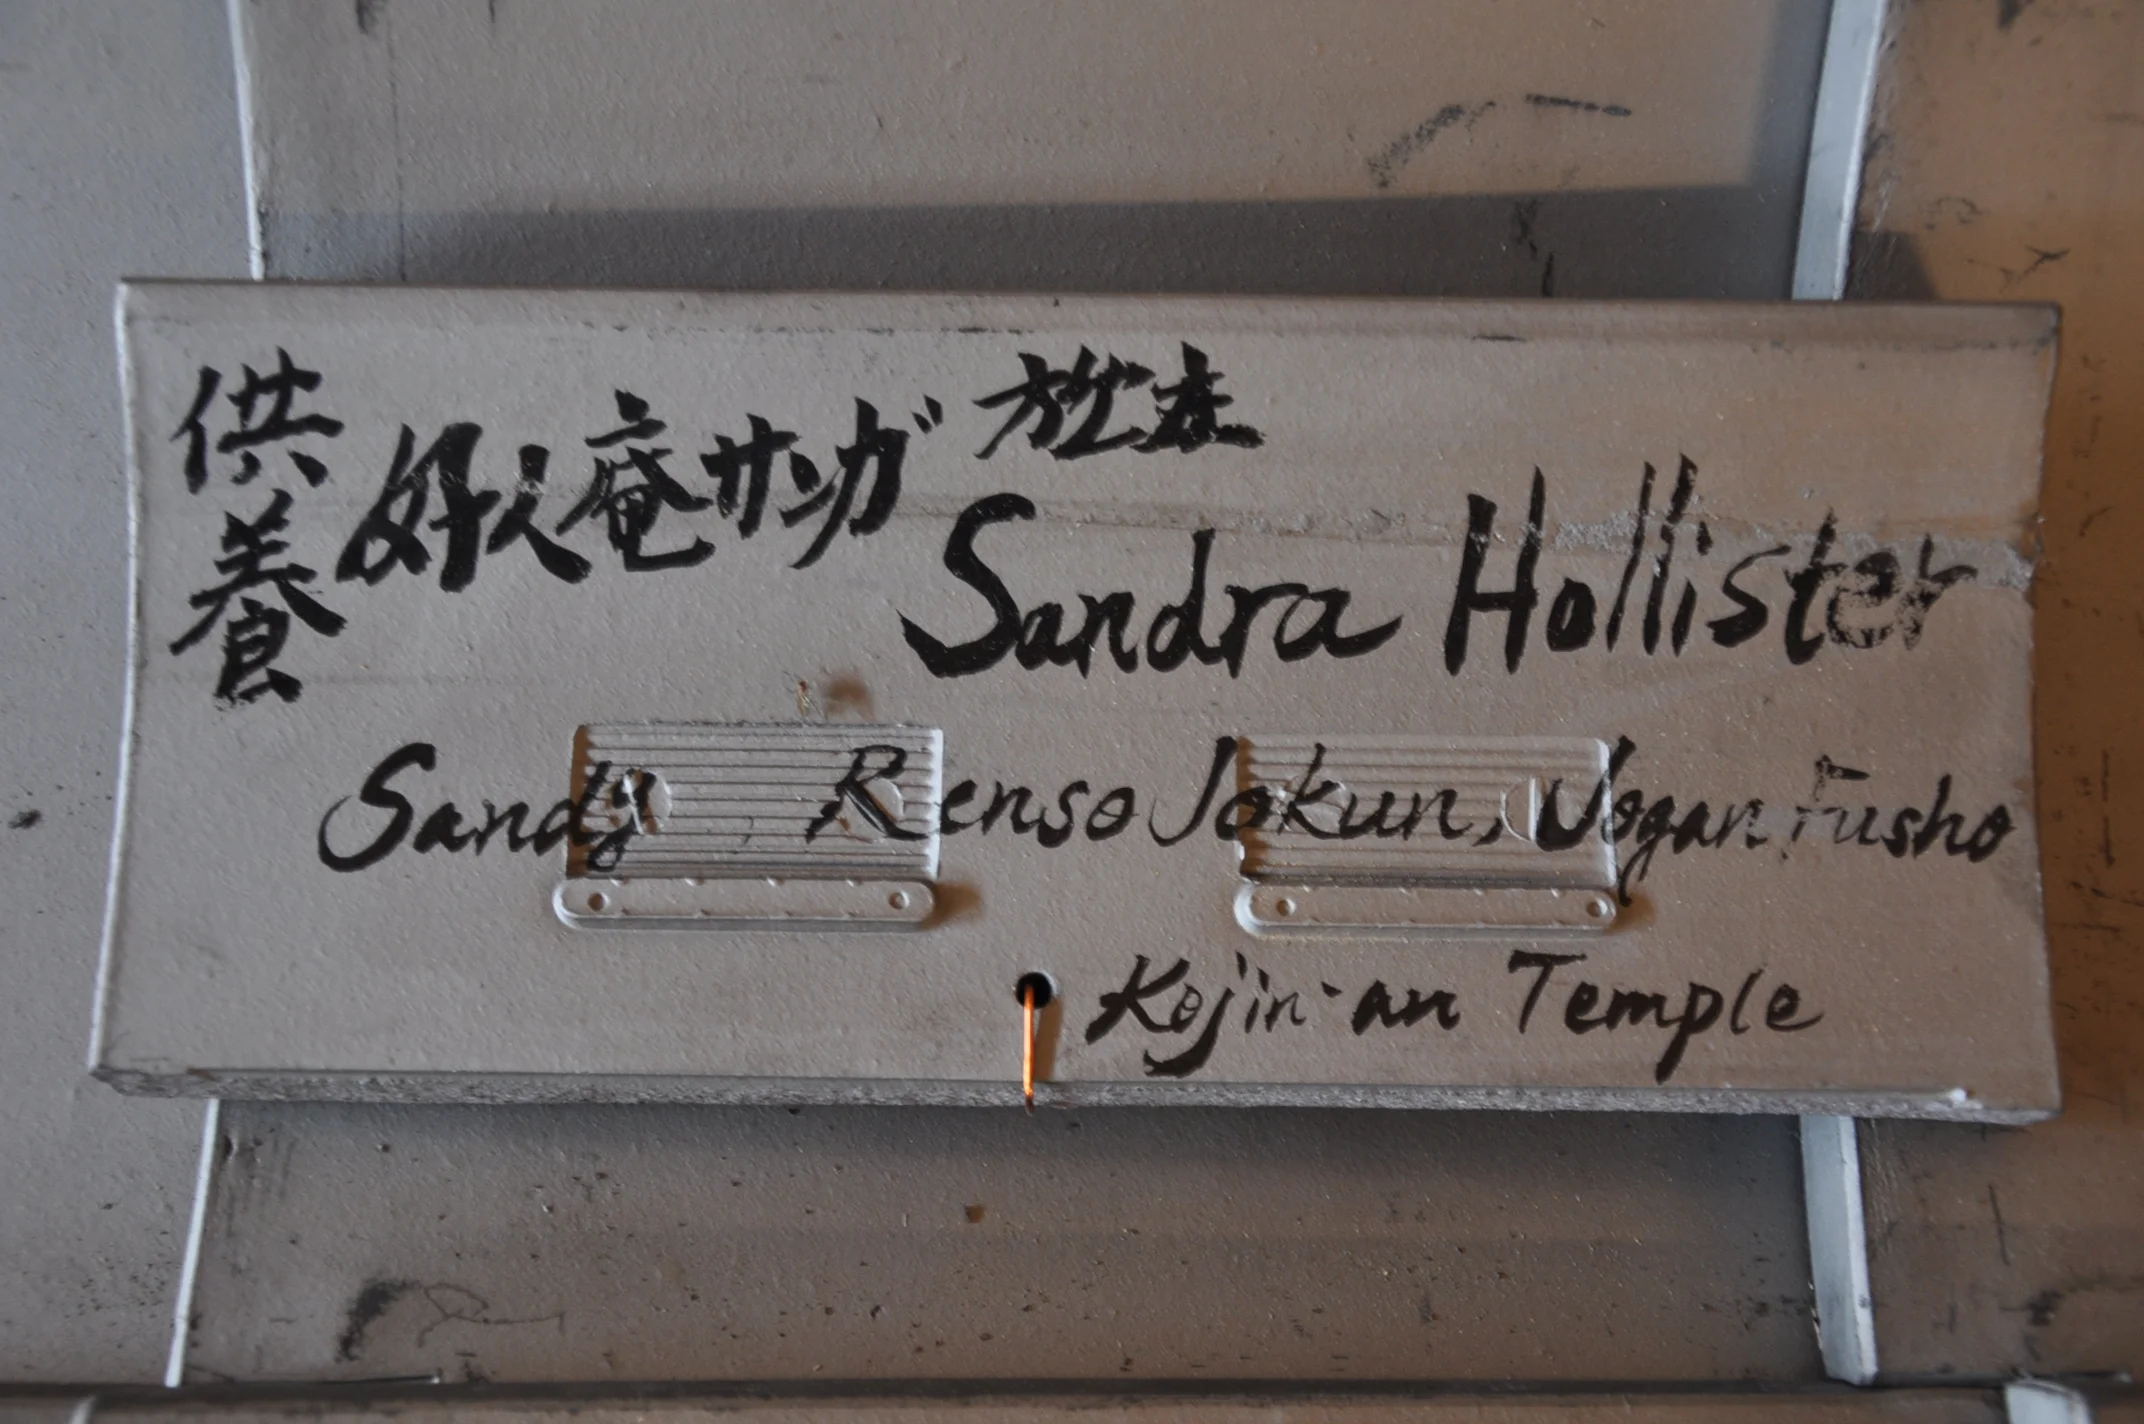 供養
好人庵サンガ
Sandra Hollister
Sandy Renso Jokun, Jogan Fusho
Kojin-an Temple